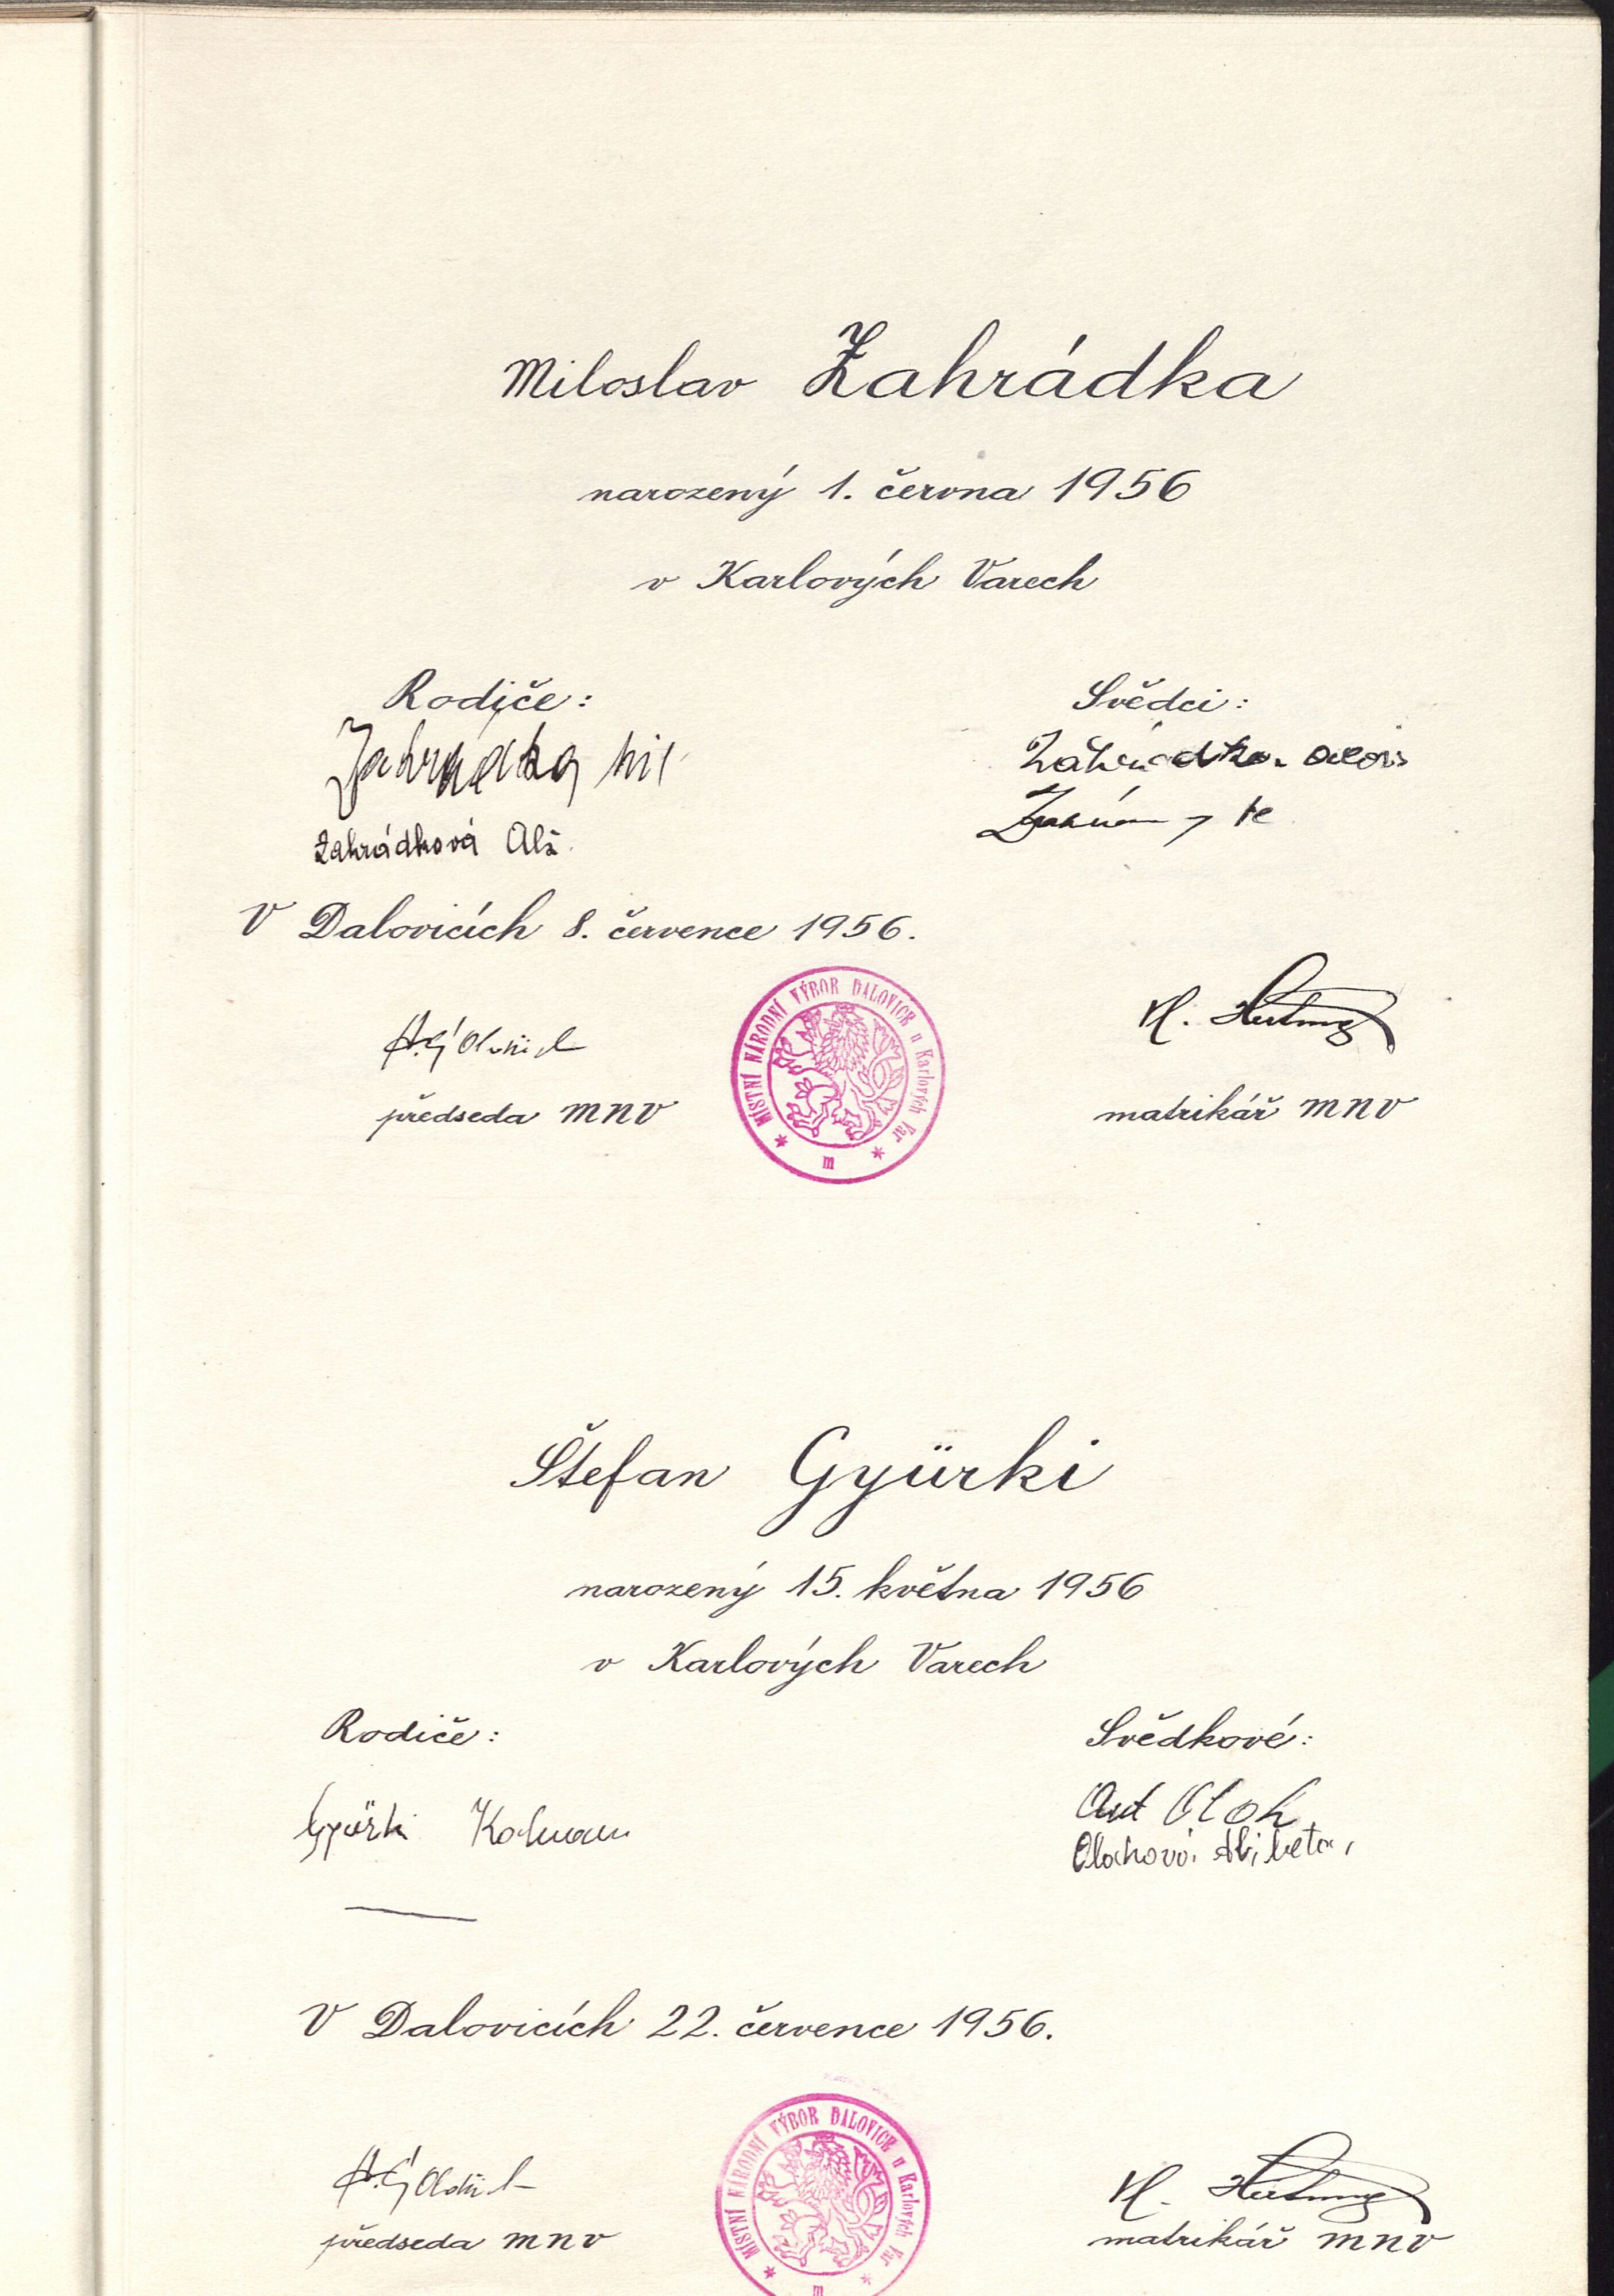 Miloslav Zahrádka
narozený 1. června 1956
v Karlových Varech
Rodiče:
Svědci:
Zahrádka Mil.
Zahrádka Alois
Zahrádková Alž.
V Dalovicích 8. července 1956.
MÍSTNÍ NÁRODNÍ VÝBOR DALOVICE u Karlových Var
m
předseda MNV
matrikář MNV
Štefan Gyürki
narozený 15. května 1956
v Karlových Varech
Rodiče:
Svědkové:
Gyürki Kolman
Ant Oloh
Olohová Alžbeta
V Dalovicích 22. července 1956.
MÍSTNÍ NÁRODNÍ VÝBOR DALOVICE u Karlových Var
m
předseda MNV
matrikář MNV